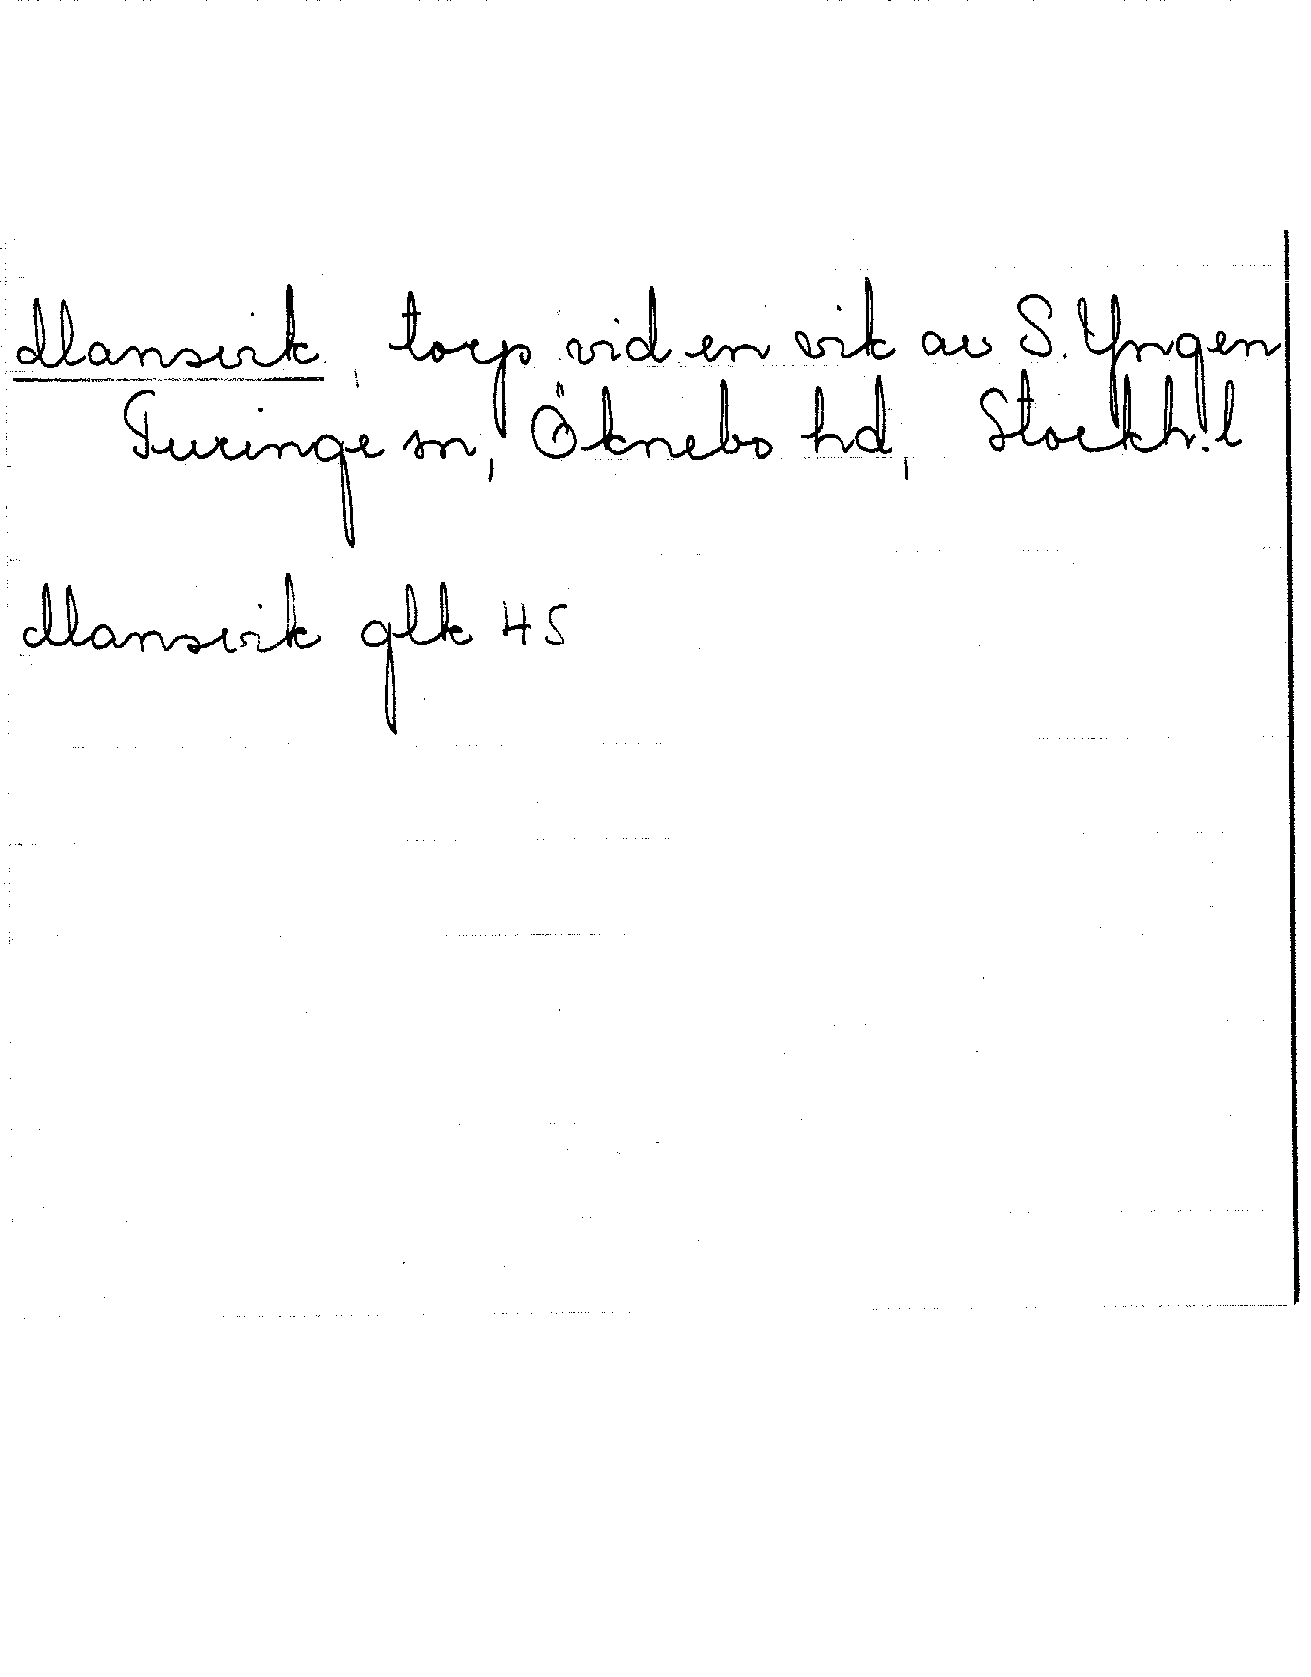 Mansvik, torp vid en vik av S. Yngen
Turinge sn, Öknebo hd, Stockh. l
Mansvik glk 45